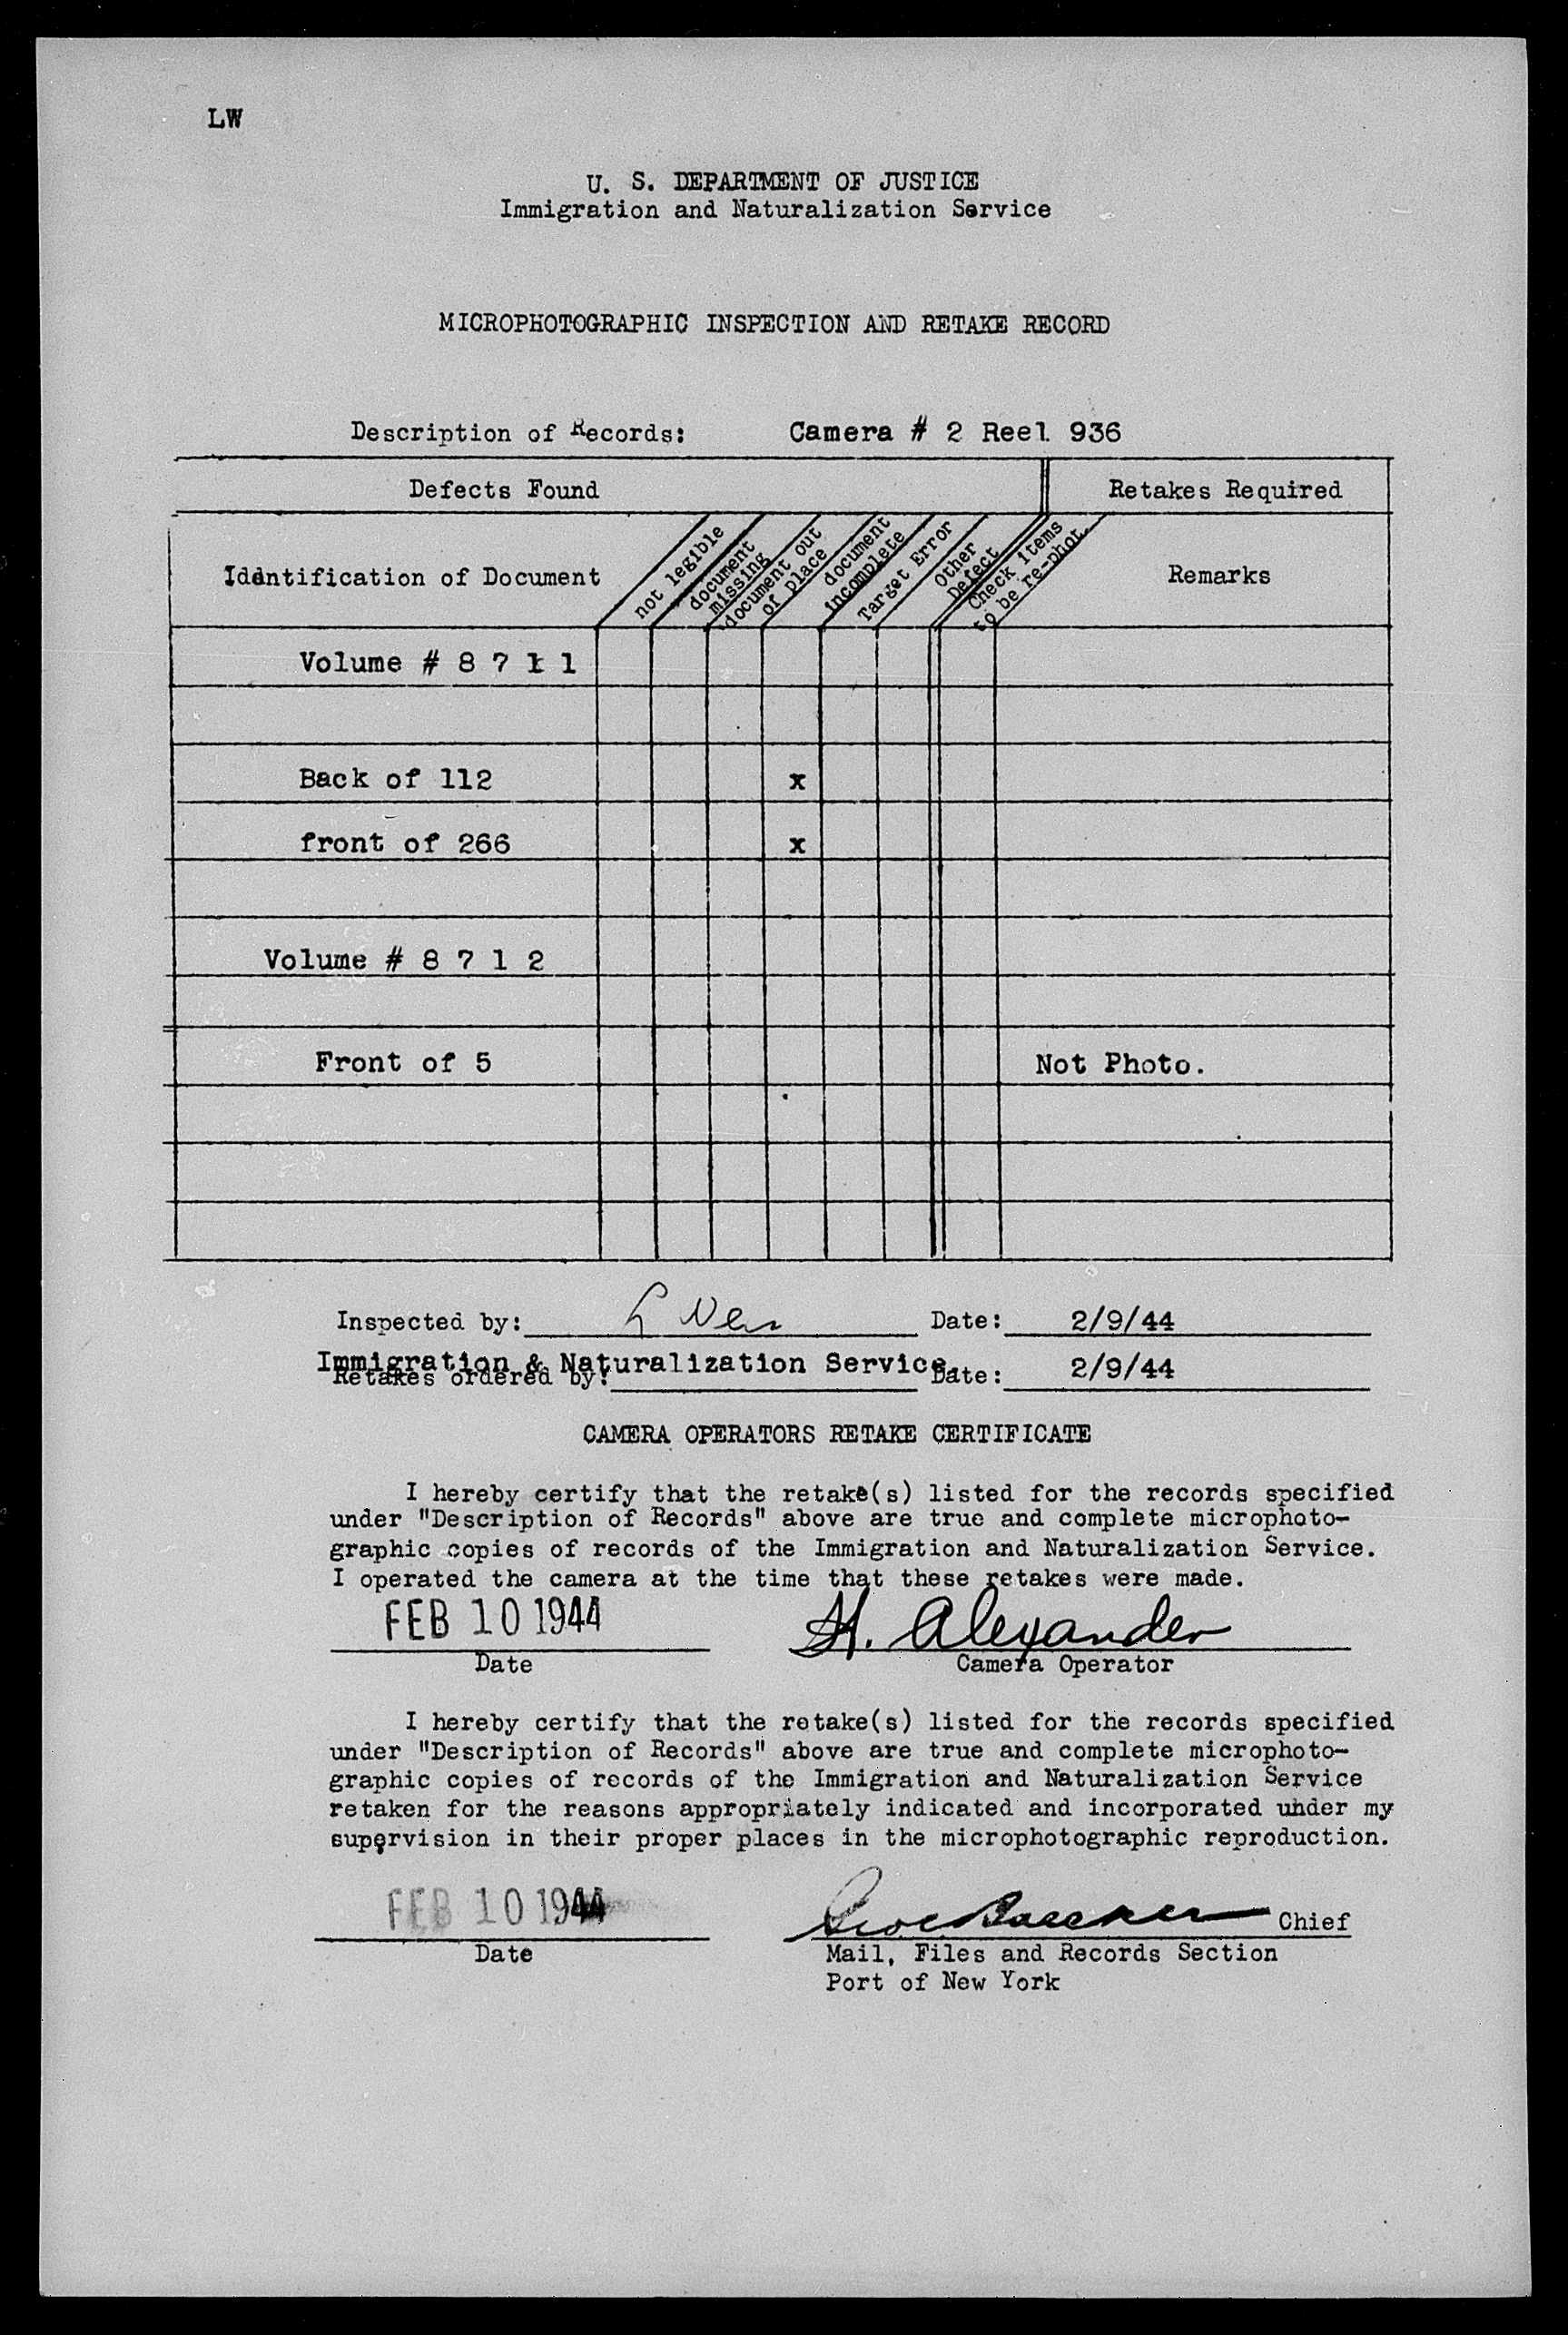 LW
U. S. DEPARTMENT OF JUSTICE
Immigration and Naturalization Service
MICROPHOTOGRAPHIC INSPECTION AND RETAKE RECORD
Description of Records: Camera # 2 Reel 936
Defects Found Retakes Required
Iddntification of Document not legible document missing document out of place document incomplete Target Error Other Defect Check items to be re-phot. Remarks
Volume # 8 7 1 1
Back of 112 x
front of 266 x
Volume # 8 7 1 2
Front of 5 Not Photo.
Inspected by: Date: 2/9/44
Immigration & Naturalization Service.
Retakes ordered by: Date: 2/9/44
CAMERA OPERATORS RETAKE CERTIFICATE
I hereby certify that the retake(s) listed for the records specified
under "Description of Records" above are true and complete microphoto-
graphic copies of records of the Immigration and Naturalization Service.
I operated the camera at the time that these retakes were made.
FEB 10 1944 H. Alexander
Date Camera Operator
I hereby certify that the retake(s) listed for the records specified
under "Description of Records" above are true and complete microphoto-
graphic copies of records of the Immigration and Naturalization Service
retaken for the reasons appropriately indicated and incorporated under my
supervision in their proper places in the microphotographic reproduction.
FEB 10 1944 Chief
Date Mail, Files and Records Section
Port of New York